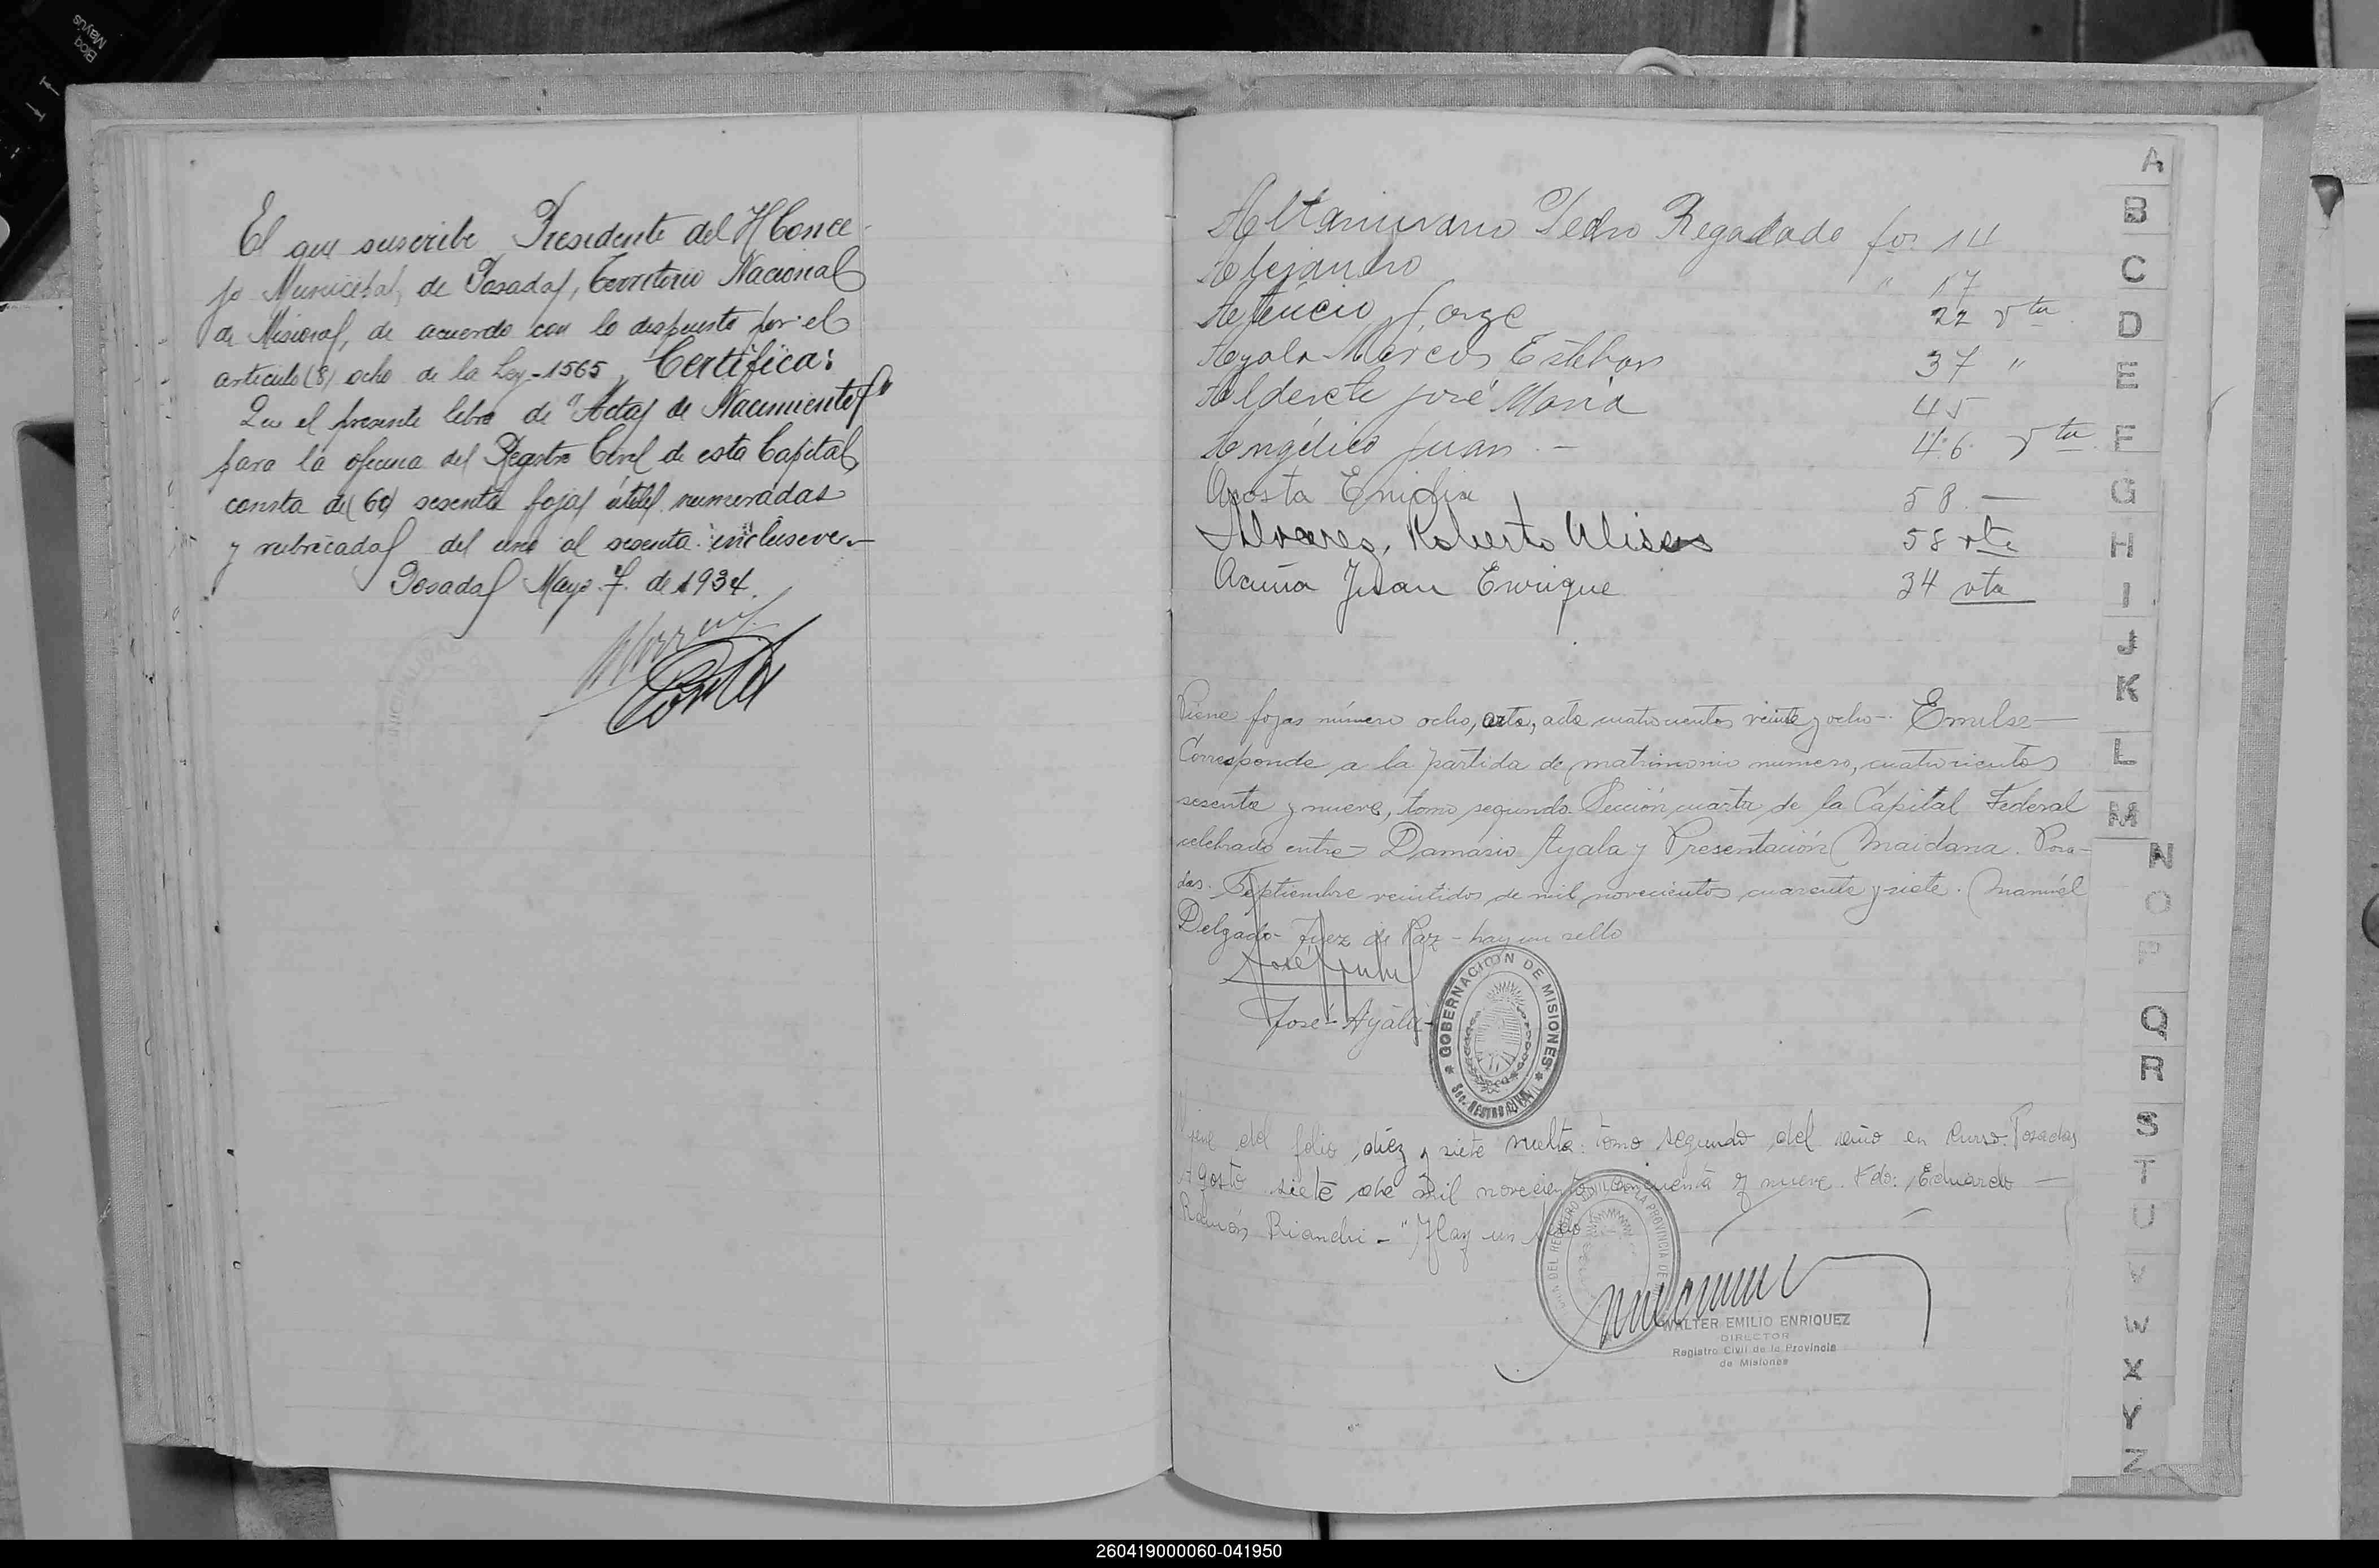 Bloq
Mayús
El que suscribe, Presidente del H Conce-
jo Municipal, de Posadas, Territorio Nacional
de Misiones, de acuerdo con lo dispuesto por el
artículo (8) ocho de la Ley-1565, Certifica:
Que el presente libro de "Actas de Nacimientos"
para la oficina del Registro Civil de esta Capital,
consta de (60) sesenta fojas útiles numeradas
y rubricadas del uno al sesenta inclusive.-
Posadas Mayo 7. de 1934.
Altamirano Pedro Regalado fos 14
Alejandro " 17
Jorge 22 vta
Ayala Marcos Esteban 37 "
Alderete José María 45
Angélico Juan . - 46 vta
Acosta Enidia 58 —
Alvares, Roberto Ulises 58 vta
Acuña Juan Enrique 34 vta
Viene fojas número ocho, acta, acta cuatrocientos veinte y ocho-. Emilse—
Corresponde a la partida de matrimonio numero, cuatrocientos
sesenta y nueve, tomo segundo Sección cuarta de la Capital Federal
celebrado entre Damasio Ayala y Presentación Maidana. Posa-
das. Septiembre veintidos de mil novecientos cuarenta y siete. Manuel
Delgado- Juez de Paz - hay un sello
José Ayala
GOBERNACION DE MISIONES
Viene del folio diez y siete vuelta: tomo segundo del año en curso. Posadas
Agosto siete de mil novecientos cincuenta y nueve. Fdo: Eduardo —
Ramón Riandi - "Hay un sello
WALTER EMILIO ENRIQUEZ
DIRECTOR
Registro Civil de la Provincia
de Misiones
A
B
C
D
E
F
G
H
I
J
K
L
M
N
O
P
Q
R
S
T
U
V
W
X
Y
Z
260419000060-041950